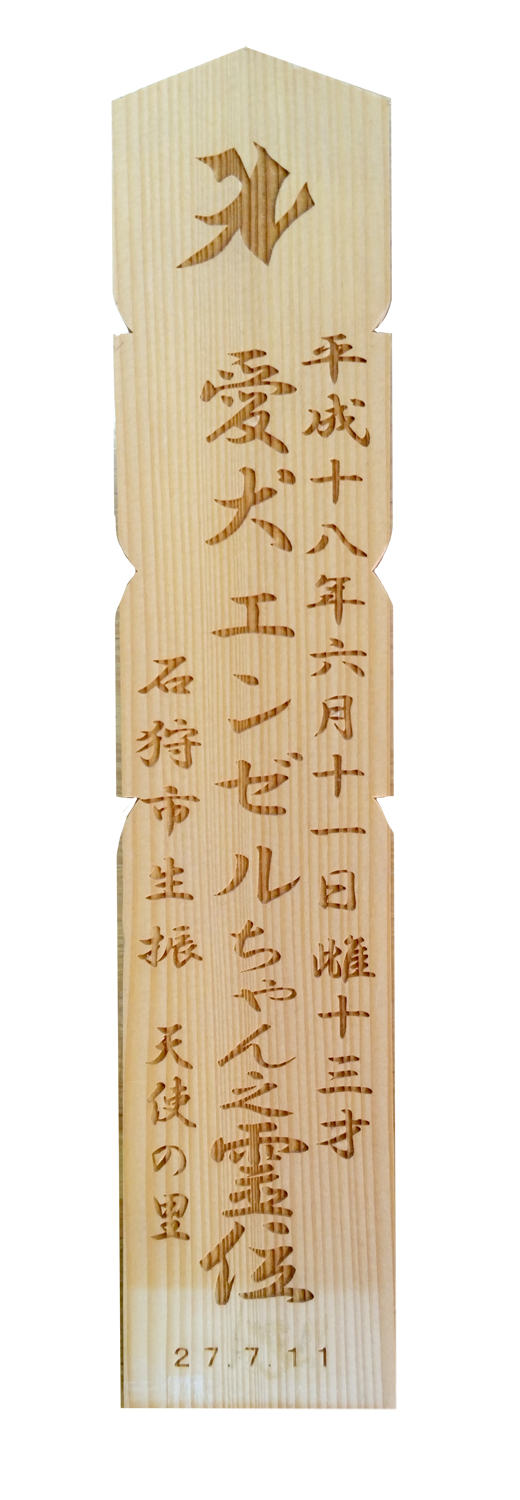 平成十八年六月十一日 雌十三才
愛犬 エンゼルちゃん之霊位
石狩市生振 天使の里
27.7.11